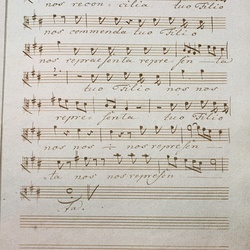 nos recon- cilia tuo Filio
nos commenda tuo Filio
nos repraesenta repre- sen- ta
tuo Filio nos nos
repre- senta tuo Filio
nos nos nos represen-
ta nos represen
ta.